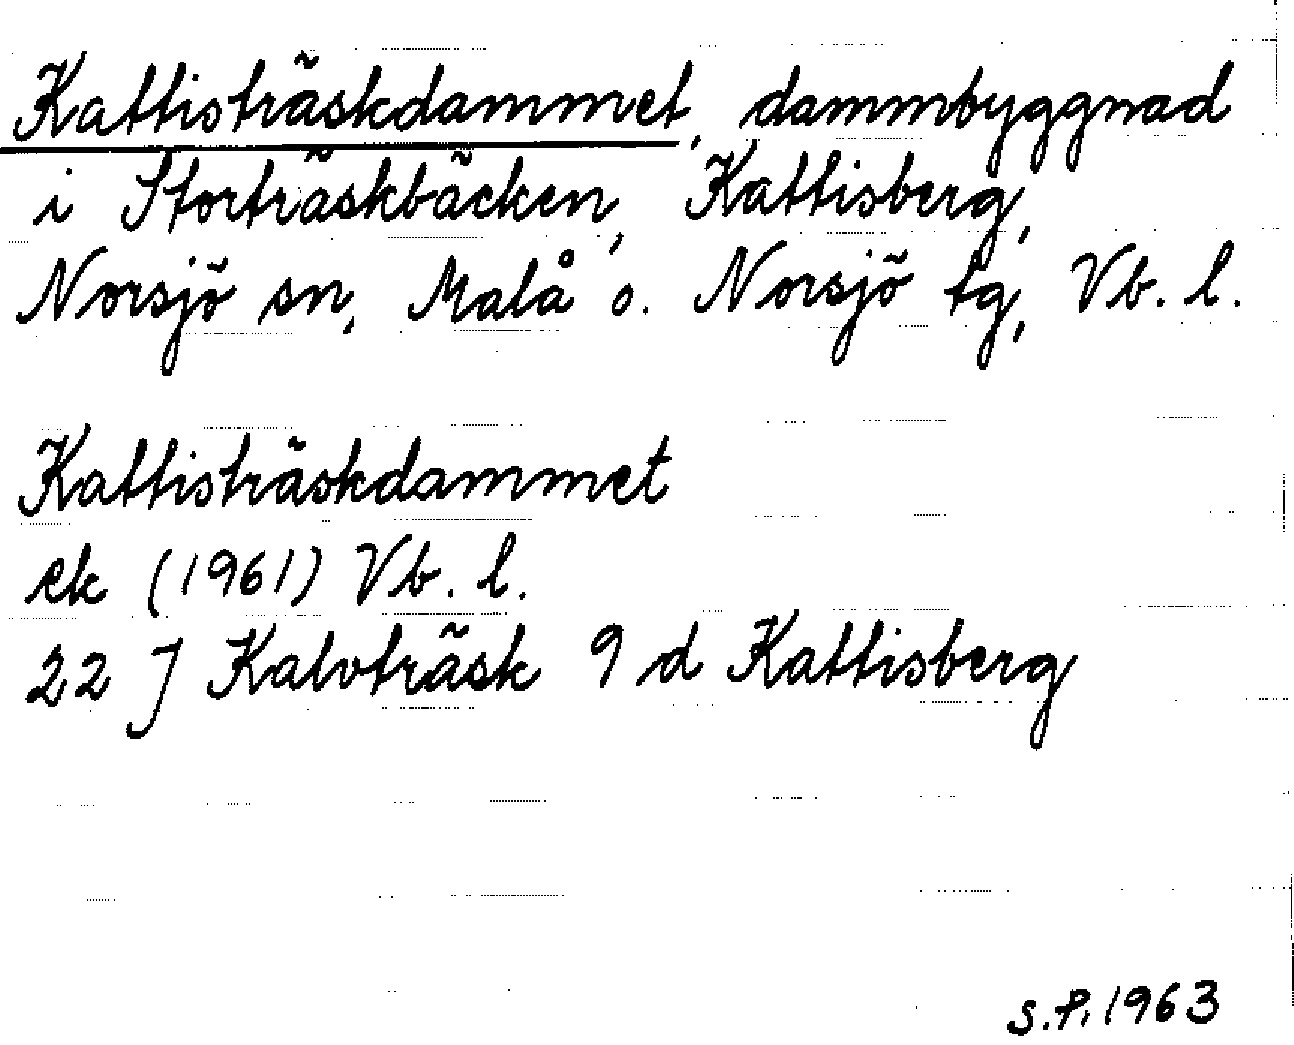 Kattisträskdammet, dammbyggnad
i Storträskbäcken, Kattisberg,
Norsjö sn, Malå o. Norsjö tg, Vb. l.
Kattisträskdammet
ek (1961) Vb. l.
22 J Kalvträsk 9 d Kattisberg
S.P. 1963